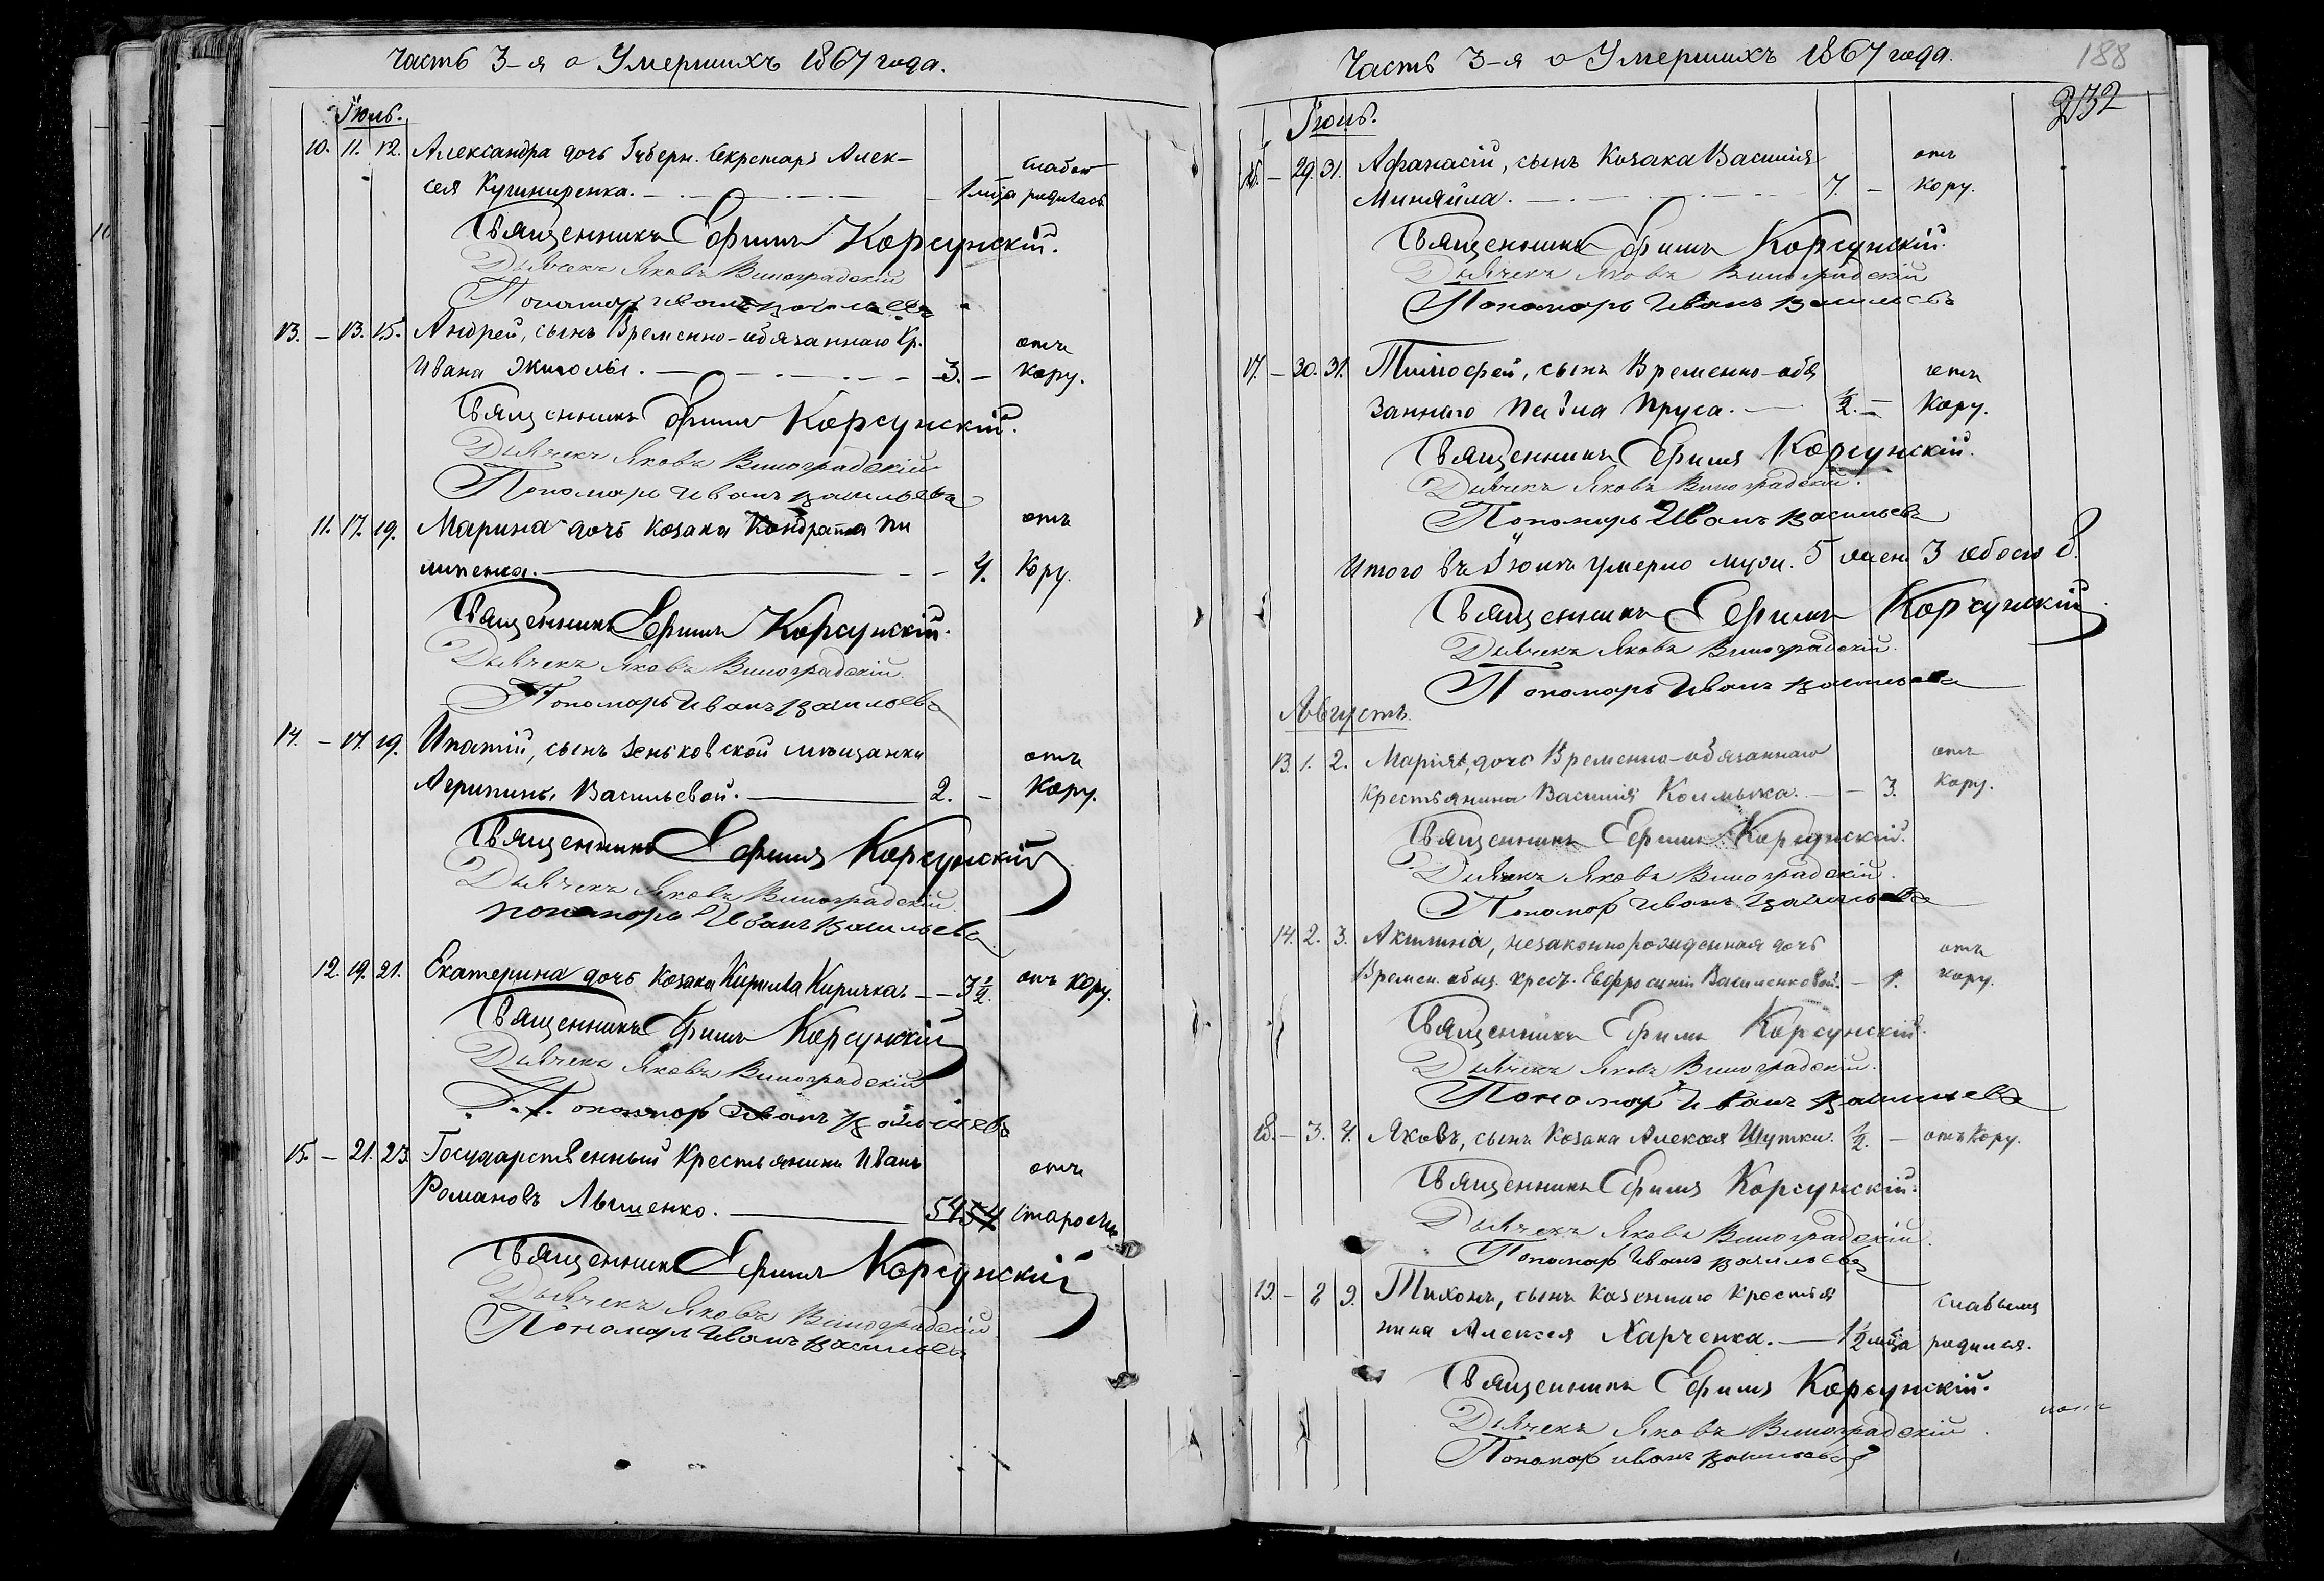 Часть 3-я о Умершихъ 1867 года.
Іюль.
10. 11. 12. Александра дочь Губерн. Секретаря Алек-
сея Кушниренка. 1 мца слабою родилась
Священникъ Ефимъ Корсунскій.
Дьячекъ Яковъ Виноградскій
Пономарь Иванъ Васильевъ
13. – 13. 15. Андрей, сынъ Временно-обязаннаго Кр.
Ивана 3. – отъ Кору.
Священникъ Ефимъ Корсунскій.
Дьячекъ Яковъ Виноградскій
Пономарь Иванъ Васильевъ
11. 17. 19. Марина дочь Козака Кондрата Пи
липенка. – – 4. отъ Кору.
Священникъ Ефимъ Корсунскій.
Дьячекъ Яковъ Виноградскій
Пономарь Иванъ Васильевъ
14. – 17. 19. Ипатій, сынъ Зеньковской мѣщанки
Агрипины Васильевой. 2. – отъ Кору.
Священникъ Ефимъ Корсунскій
Дьячекъ Яковъ Виноградскій
пономарь Иванъ Васильевъ
12. 19. 21. Екатерина дочь Козака Кирила Киричка. – – 3 1/2. отъ Кору.
Священникъ Ефимъ Корсунскій
Дьячекъ Яковъ Виноградскій
Пономарь Иванъ Васильевъ
15. – 21. 23. Государственный Крестьянинъ Иванъ
Романовъ Лышенко. 54 54 отъ старости
Священникъ Ефимъ Корсунскій
Дьячекъ Яковъ Виноградскій
Пономарь Иванъ Васильевъ
Часть 3-я о Умершихъ 1867 года.
188
232
Іюль.
16. – 29. 31. Афанасій, сынъ Козака Василія
Миняйла. 7. – отъ Кору.
Священникъ Ефимъ Корсунскій.
Дьячекъ Яковъ Виноградскій
Пономарь Иванъ Васильевъ
17. – 30. 31. Тимофей, сынъ Временно-обя
заннаго Павла Пруса. 1/2. – отъ Кору.
Священникъ Ефимъ Корсунскій.
Дьячекъ Яковъ Виноградскій.
Пономарь Иванъ Васильевъ
Итого въ Іюлѣ умерло муж. 5 жен. 3 обоего 8.
Священникъ Ефимъ Корсунскій
Дьячекъ Яковъ Виноградскій
Пономарь Иванъ Васильевъ
Августъ.
13. 1. 2. Марія, дочь Временно-обязаннаго
крестьянина Василія Колмыка. – 3. отъ Кору.
Священникъ Ефимъ Корсунскій.
Дьячекъ Яковъ Виноградскій.
Пономарь Иванъ Васильевъ
14. 2. 3. Акилина, незаконнорожденная дочь
Времен. обяз. крест. Евфросиніи Василенковой. – 1. отъ Кору.
Священникъ Ефимъ Корсунскій.
Дьячекъ Яковъ Виноградскій.
Пономарь Иванъ Васильевъ
18. – 3. 4. Яковъ, сынъ Козака Алексея Шутки. 1/2. – отъ Кору.
Священникъ Ефимъ Корсунскій.
Дьячекъ Яковъ Виноградскій.
Пономарь Иванъ Васильевъ
19. – 8 9. Тихонъ, сынъ Казеннаго Крестья
нина Алексея Харченка. – 1 1/2 мца слабымъ родился.
Священникъ Ефимъ Корсунскій.
Дьячекъ Яковъ Виноградскій
Пономарь Иванъ Васильевъ